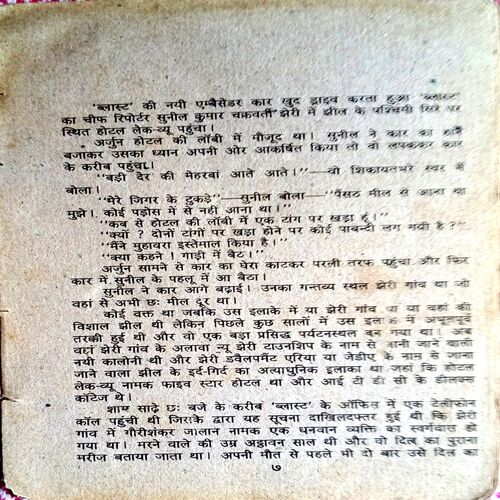 'ब्लास्ट' की नयी एम्बैसेडर कार खुद ड्राइव करता हुआ 'ब्लास्ट'
का चीफ रिपोर्टर सुनील कुमार चक्रवर्ती झेरी में झील के पश्चिमी सिरे पर
स्थित होटल लेक-व्यू पहुंचा।
अर्जुन होटल की लॉबी में मौजूद था। सुनील ने कार का हार्न
बजाकर उसका ध्यान अपनी ओर आकर्षित किया तो वो लपककर कार
के करीब पहुंचा।
''बड़ी देर की मेहरबां आते आते।''—वो शिकायतभरे स्वर में
बोला।
''मेरे जिगर के टुकड़े''—सुनील बोला—''पैंसठ मील से आना था
मुझे। कोई पड़ोस में से नहीं आना था।''
''कब से होटल की लॉबी में एक टांग पर खड़ा हूं।''
''क्यों? दोनों टांगों पर खड़ा होने पर कोई पाबन्दी लग गयी है?''
''मैंने मुहावरा इस्तेमाल किया है।''
''क्या कहने! गाड़ी में बैठ।''
अर्जुन सामने से कार का घेरा काटकर परली तरफ पहुंचा और फिर
कार में सुनील के पहलू में आ बैठा।
सुनील ने कार आगे बढ़ाई। उनका गन्तव्य स्थल झेरी गांव था जो
वहां से अभी छः मील दूर था।
कोई वक्त था जबकि उस इलाके में या झेरी गांव था या वहां की
विशाल झील थी लेकिन पिछले कुछ सालों में उस इलाके में अभूतपूर्व
तरक्की हुई थी और वो एक बड़ा प्रसिद्ध पर्यटनस्थल बन गया था। अब
वहां झेरी गांव के अलावा न्यू झेरी टाउनशिप के नाम से जानी जाने वाली
नयी कालोनी थी और झेरी डवैलपमेंट एरिया या जेडीए के नाम से जाना
जाने वाला झील के इर्द-गिर्द का अत्याधुनिक इलाका था जहां कि होटल
लेक-व्यू नामक फाइव स्टार होटल था और आई टी डी सी के डीलक्स
कॉटेज थे।
शाम साढ़े छः बजे के करीब 'ब्लास्ट' के ऑफिस में एक टेलीफोन
कॉल पहुंची थी जिसके द्वारा यह सूचना दाखिलदफ्तर हुई थी कि झेरी
गांव में गौरीशंकर जालान नामक एक धनवान व्यक्ति का स्वर्गवास हो
गया था। मरने वाले की उम्र अट्ठावन साल थी और वो दिल का पुराना
मरीज बताया जाता था। अपनी मौत से पहले भी दो बार उसे दिल का
७